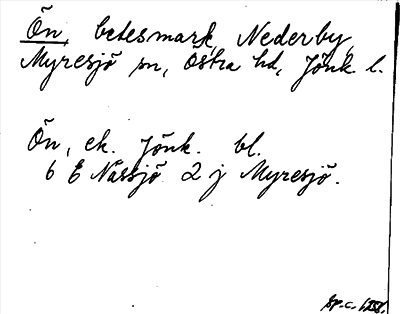 Ön, betesmark, Nederby,
Myresjö sn, Östra hd, Jönk. l.
Ön, ek. Jönk. bl.
6 E Nässjö 2 j Myresjö.